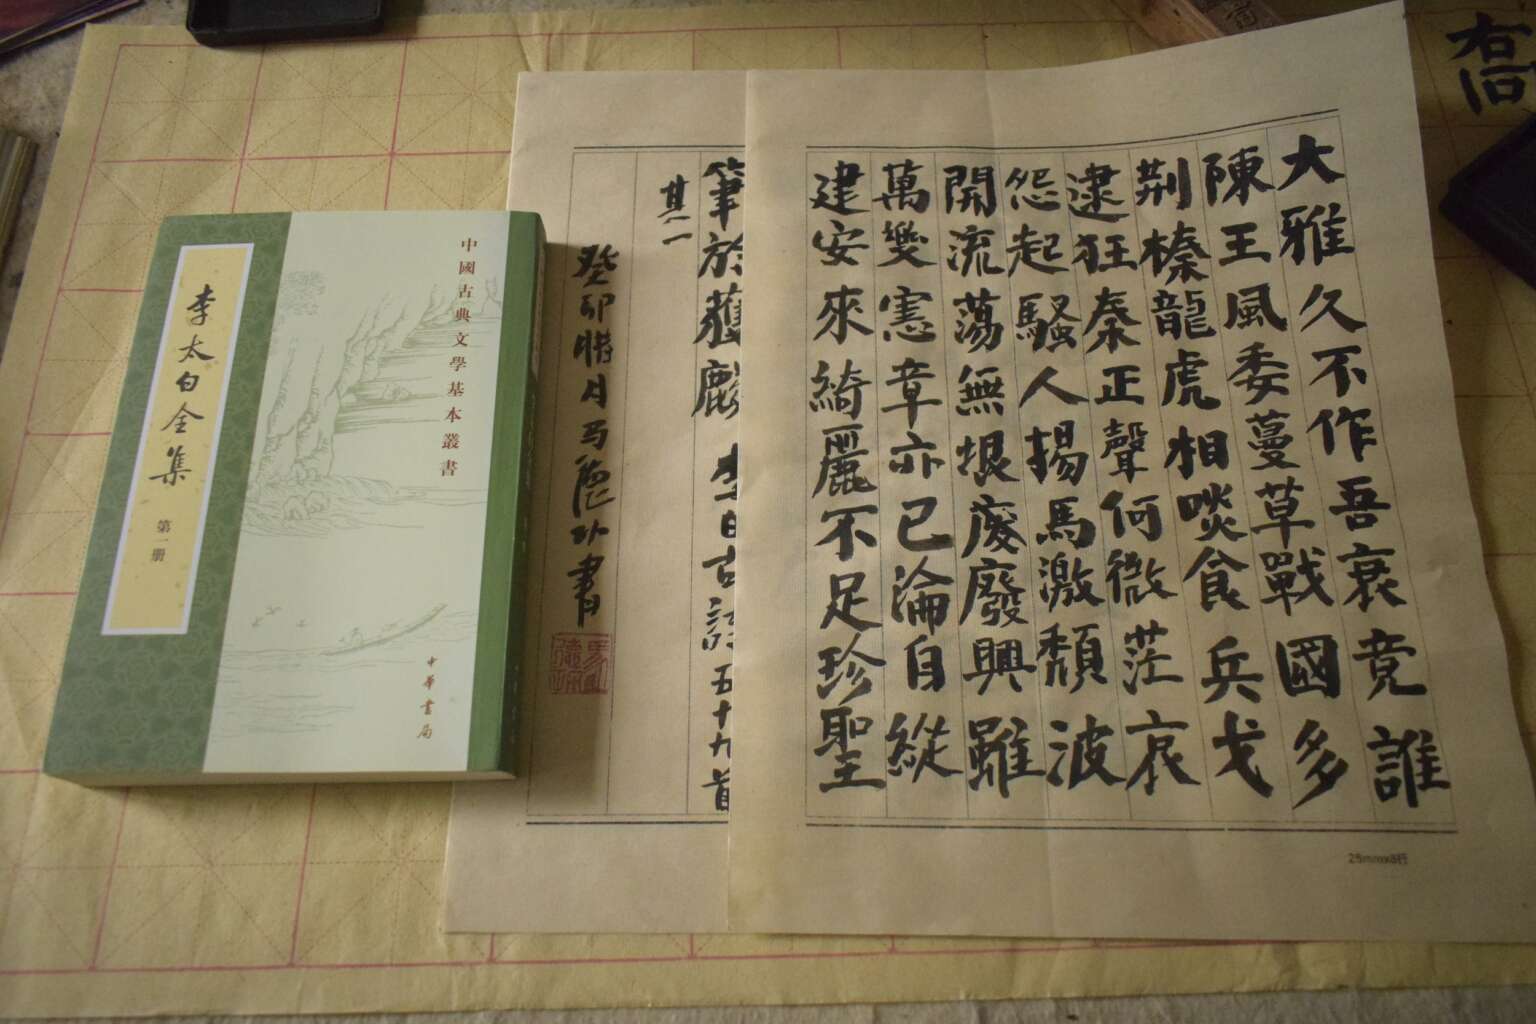 李太白全集
第一册
中國古典文學基本叢書
中華書局
大雅久不作吾衰竟誰
陳王風委蔓草戰國多
荆榛龍虎相啖食兵戈
逮狂秦正聲何微茫哀
怨起騷人揚馬激頹波
開流蕩無垠廢興雖
萬變憲章亦已淪自縱
建安來綺麗不足珍聖
25mmx8行
筆於獲麟 李白古詩五十九首
其一
癸卯腊月马德功書